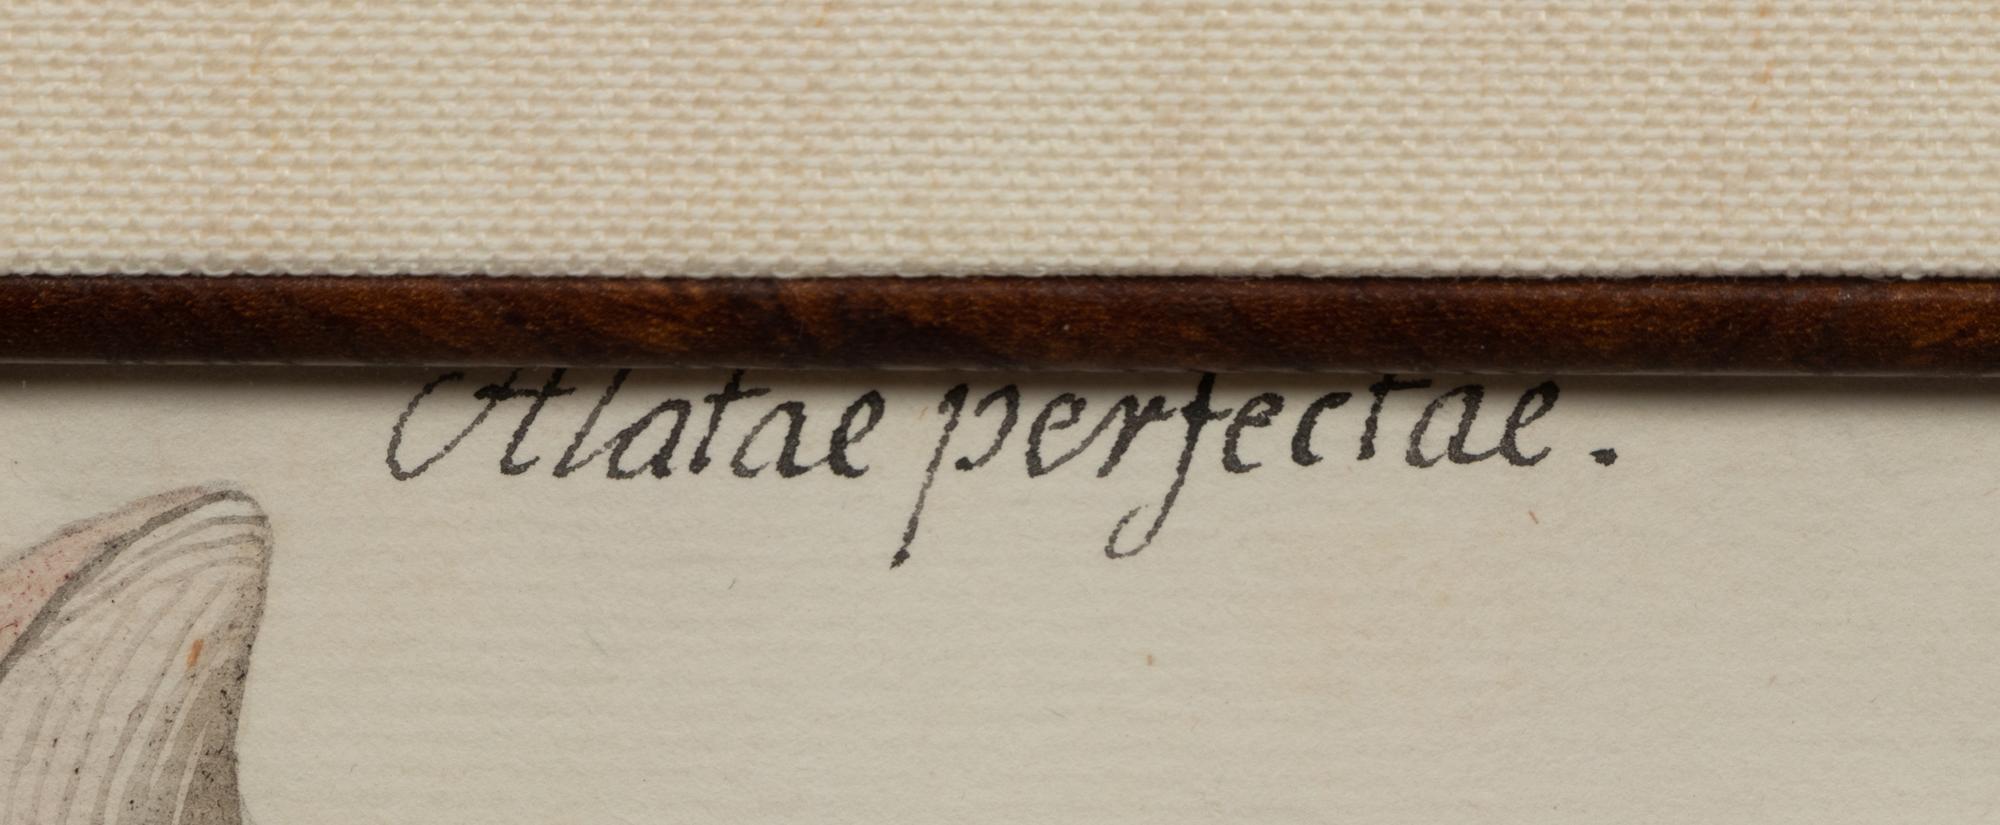 Alatae perfectae.